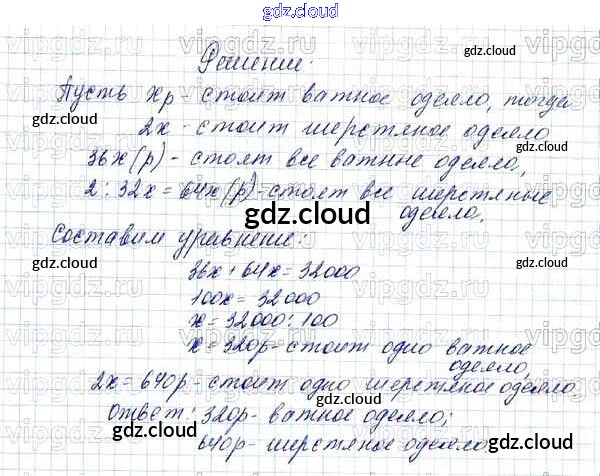 gdz.cloud
Решение:
Пусть хр - стоит ватное одеяло, тогда
2х - стоит шерстяное одеяло
36х(р) - стоят все ватные одеяла,
2 : 32х = 64х(р) - стоят все шерстяные
одеяла.
Составим уравнение:
36х + 64х = 32000
100х = 32000
х = 32000 : 100
х = 320р - стоит одно ватное
одеяло,
2х = 640р - стоит одно шерстяное одеяло
Ответ: 320р - ватное одеяло;
640р - шерстяное одеяло.
gdz.cloud
gdz.cloud
gdz.cloud
gdz.cloud
gdz.cloud
gdz.cloud
gdz.cloud
gdz.cloud
vipgdz.ru